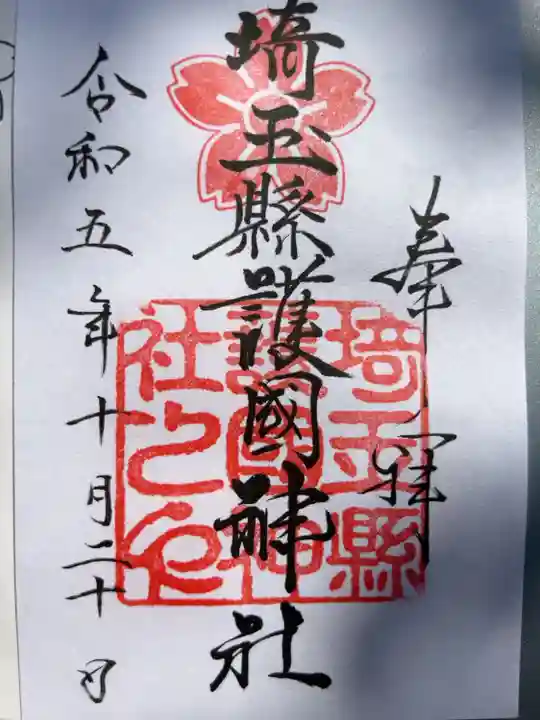 奉拝
埼玉縣護國神社
埼玉縣
護國神
社之印
令和五年十月二十日